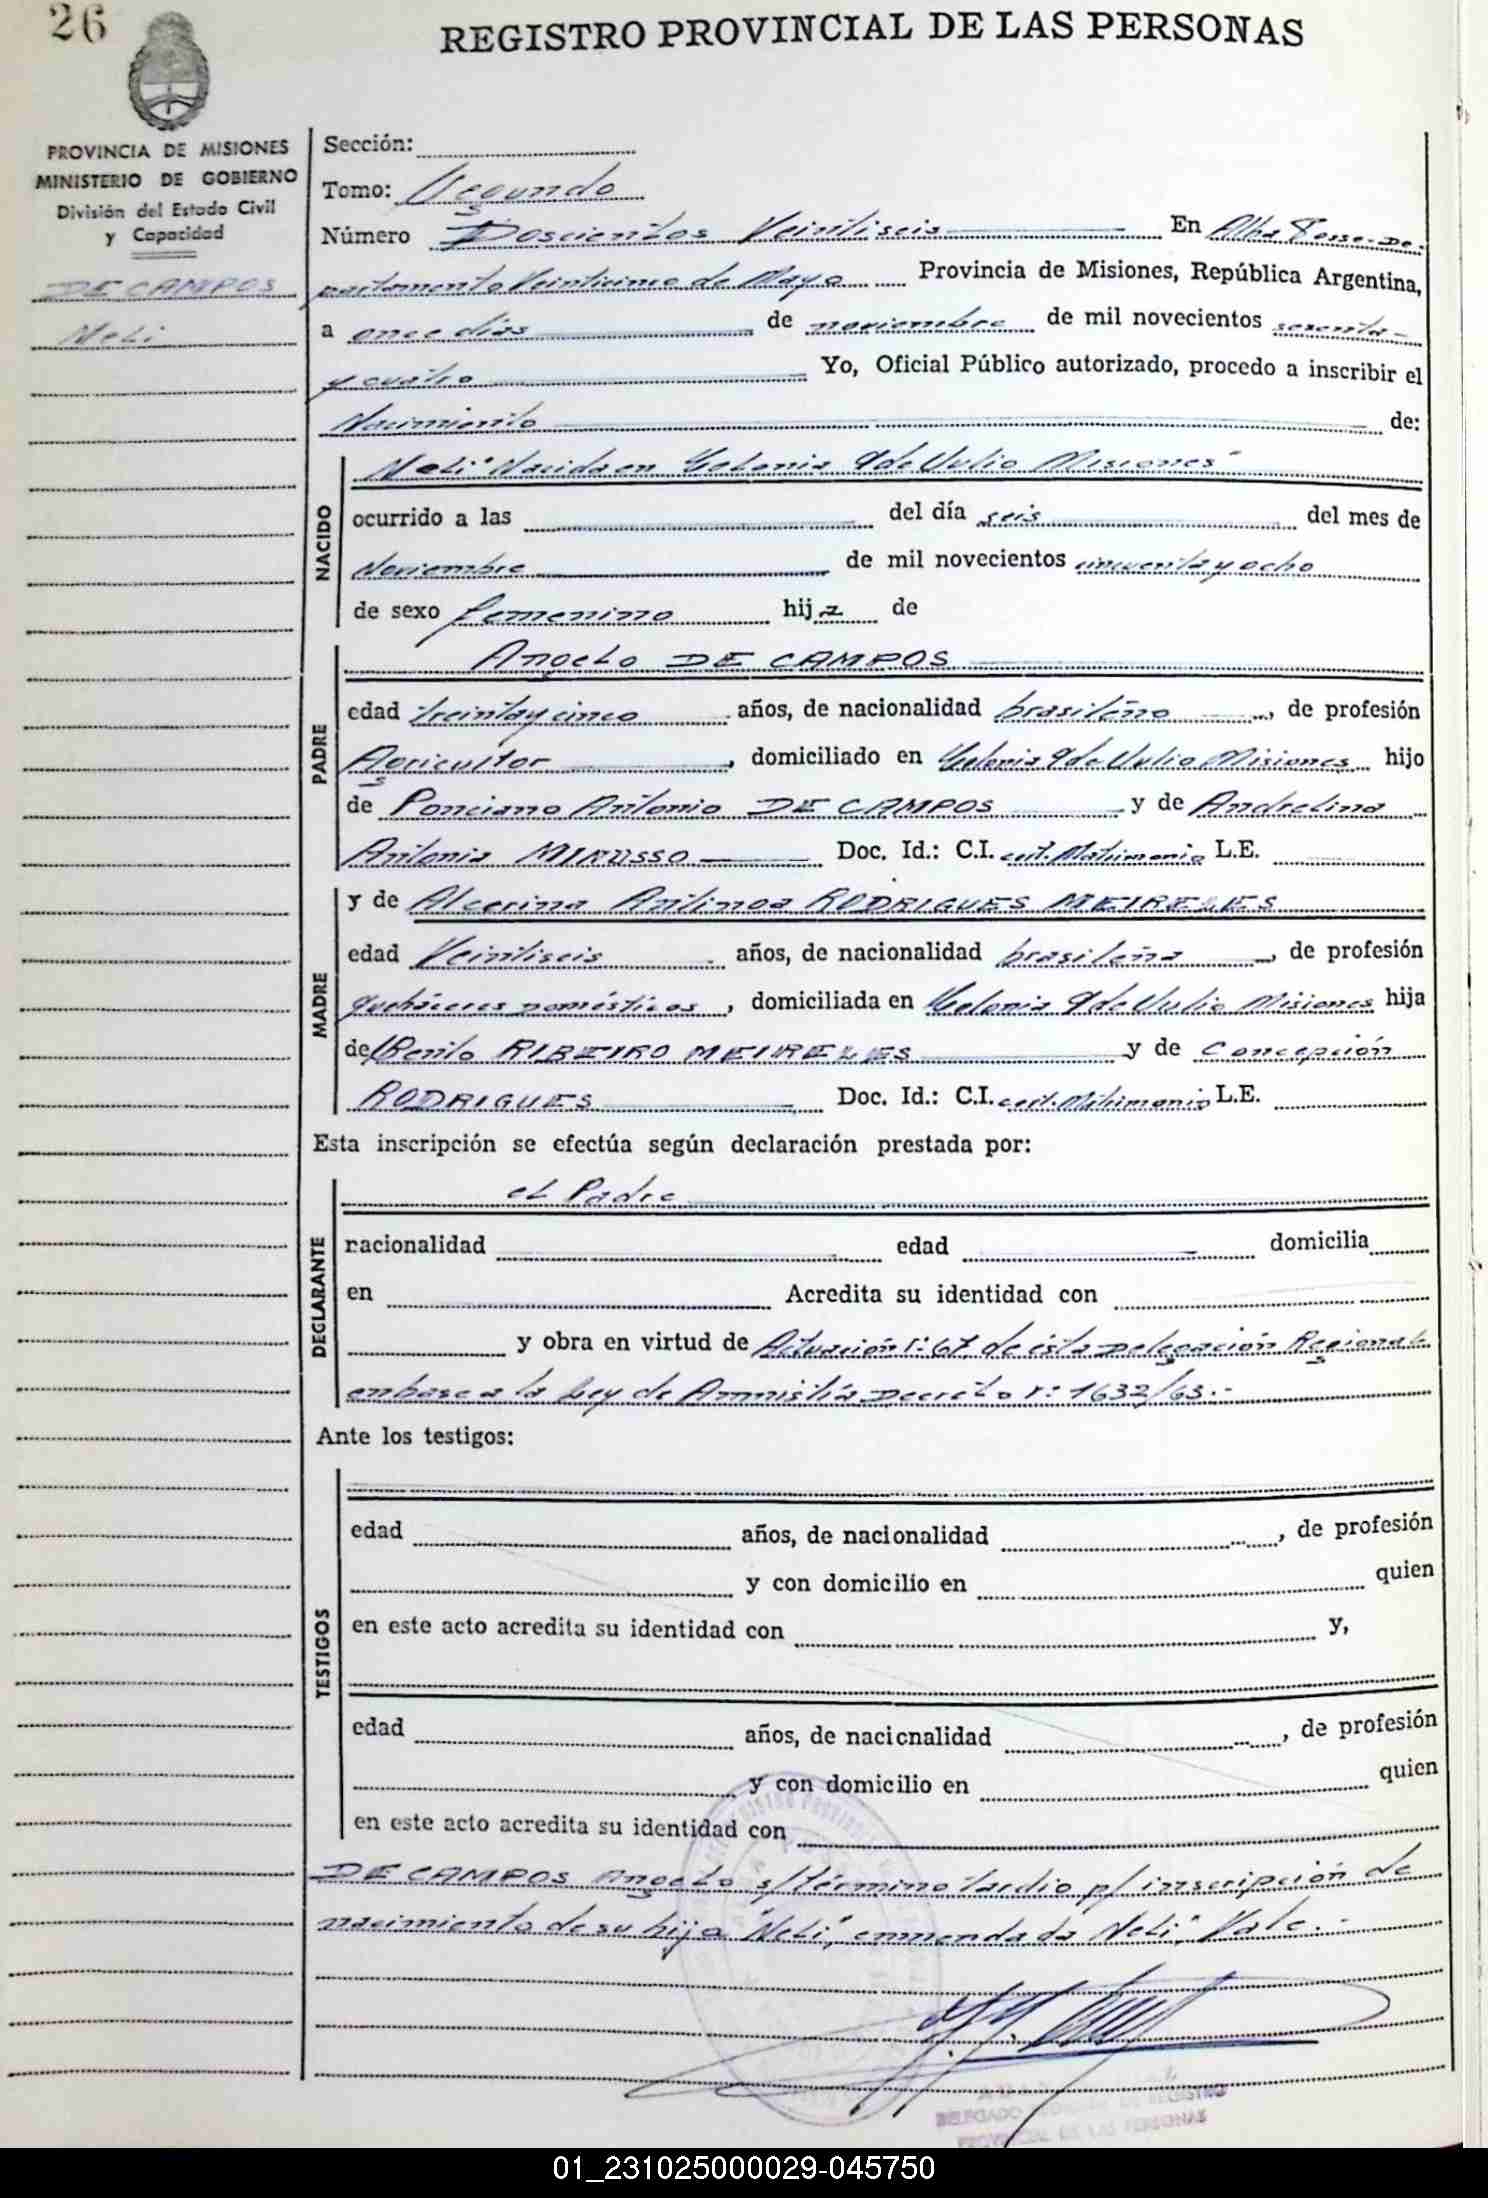 26
REGISTRO PROVINCIAL DE LAS PERSONAS
PROVINCIA DE MISIONES
MINISTERIO DE GOBIERNO
División del Estado Civil
y Capacidad
DE CAMPOS
Neli
Sección:
Tomo: Segundo
Número Doscientos Veintiseis En Alba Posse-De-
partamento Veinticinco de Mayo Provincia de Misiones, República Argentina,
a once días de noviembre de mil novecientos sesenta
y cuatro Yo, Oficial Público autorizado, procedo a inscribir el
Nacimiento de:
NACIDO
Neli "Nacida en Colonia 9 de Julio Misiones"
ocurrido a las del día seis del mes de
Noviembre de mil novecientos cincuenta y ocho
de sexo femenino hija de
PADRE
Angelo DE CAMPOS
edad treinta y cinco años, de nacionalidad brasileño, de profesión
Agricultor, domiciliado en Colonia 9 de Julio Misiones hijo
de Ponciano Antonio DE CAMPOS y de Andrelina
Antonia Doc. Id.: C.I. cert. Matrimonio L.E.
MADRE
y de Alcerina Antinoa RODRIGUES MEIRELES
edad Veintiseis años, de nacionalidad brasileña, de profesión
quehaceres domésticos, domiciliada en Colonia 9 de Julio Misiones hija
de Benito RIBEIRO MEIRELES y de Concepción
RODRIGUES Doc. Id.: C.I. cert. Matrimonio L.E.
Esta inscripción se efectúa según declaración prestada por:
DECLARANTE
el Padre
nacionalidad edad domicilia
en Acredita su identidad con
y obra en virtud de Actuación n: 67 de esta Delegación Regional
en base a la Ley de Amnistía Decreto n: 1632/63.-
Ante los testigos:
TESTIGOS
edad años, de nacionalidad, de profesión
y con domicilio en quien
en este acto acredita su identidad con y,
edad años, de nacionalidad, de profesión
y con domicilio en quien
en este acto acredita su identidad con
DE CAMPOS Angelo s/término tardio p/ inscripción de
nacimiento de su hija "Neli", enmendada Neli", Vale.-
DELEGADO DE REGISTRO
PROVINCIAL DE LAS PERSONAS
01_231025000029-045750